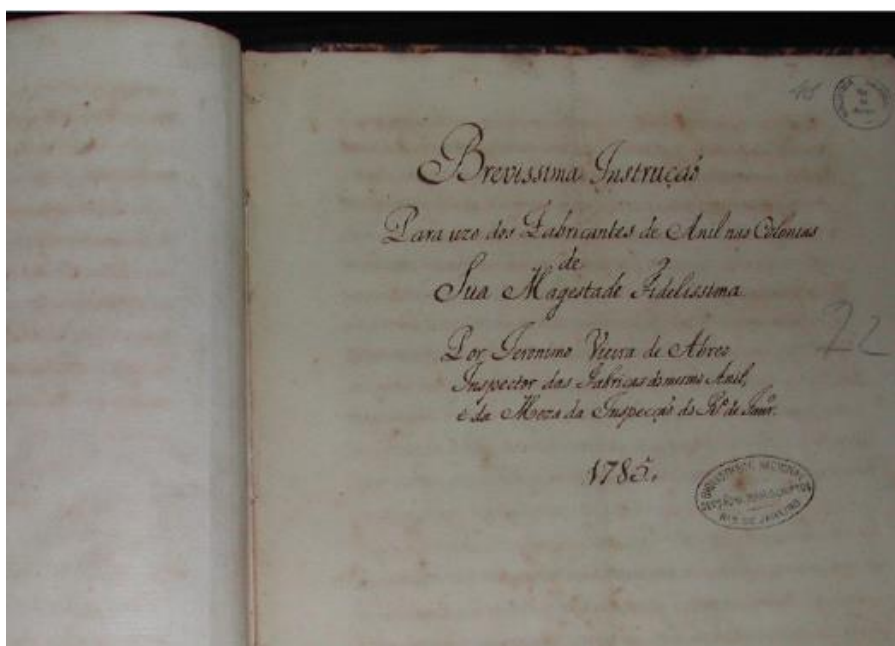 Brevissima Instrucçaõ
Para uzo dos Fabricantes de Anil nas Colonias
de
Sua Magestade Fidelissima
Por Jeronimo Vieira de Abreo
Inspector das Fabricas do mesmo Anil,
e da Meza da Inspecçaõ do Rº de Janrº.
1785.
22
BIBLIOTHECA NACIONAL
SECÇÃO MANUSCRIPTOS
RIO DE JANEIRO